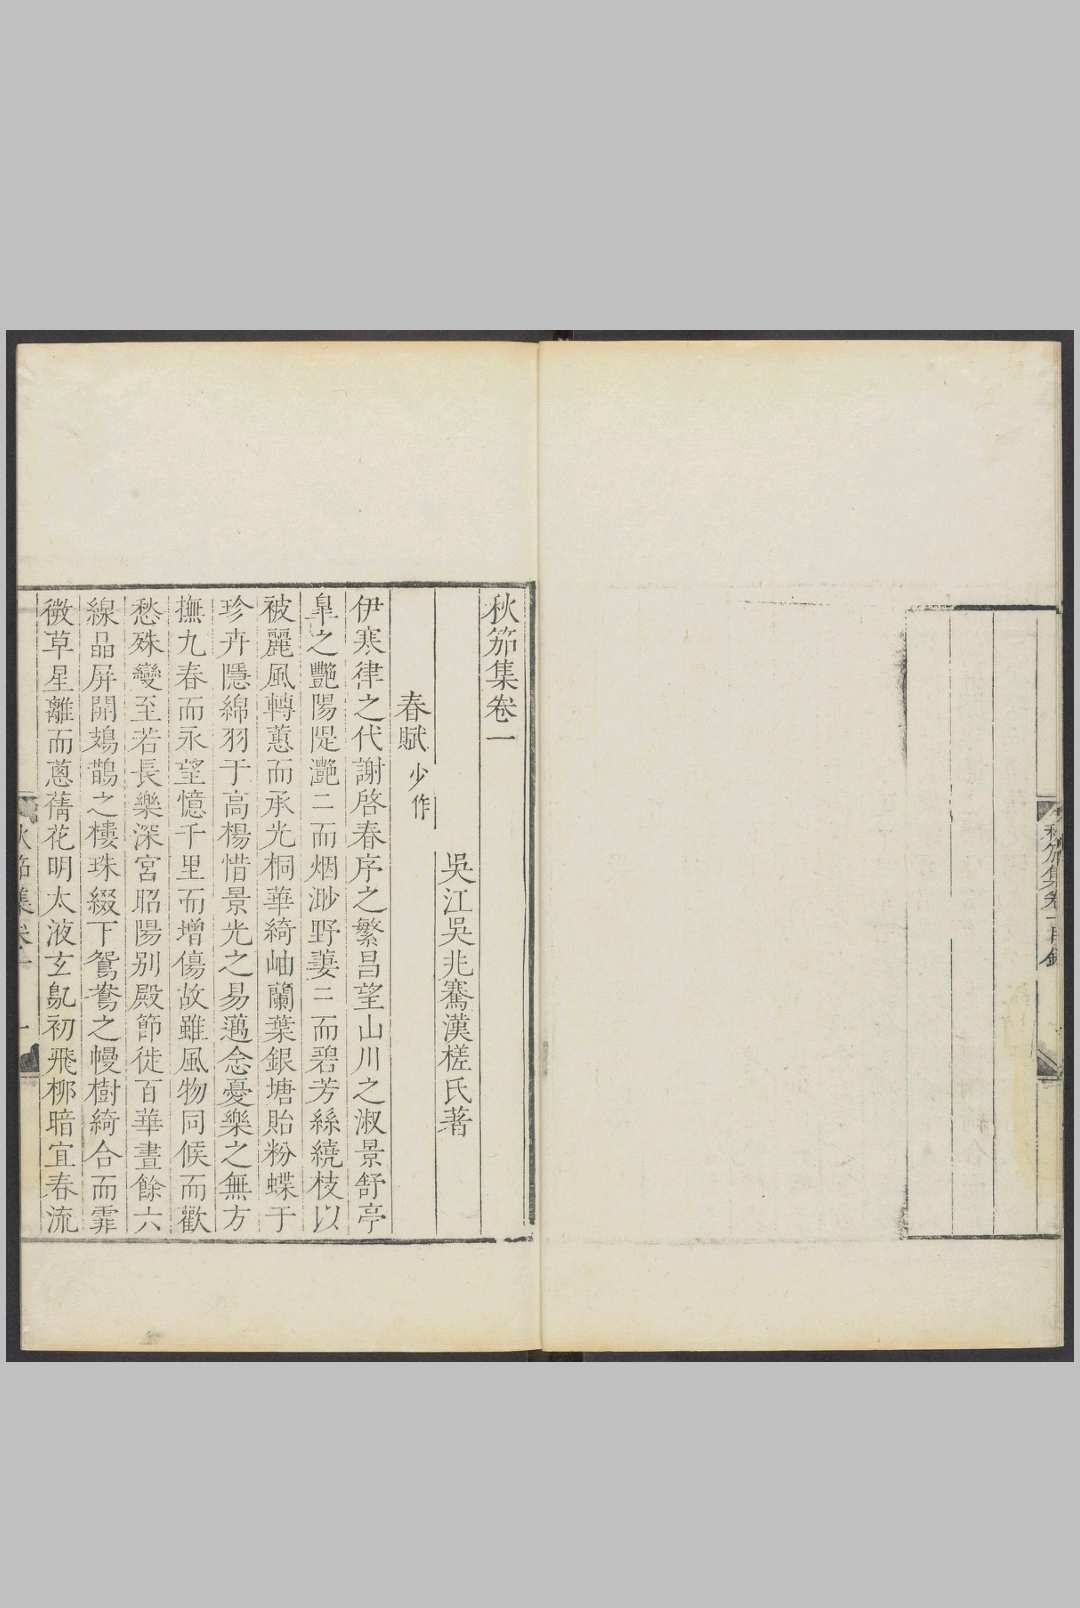 秋笳集卷一目錄
秋笳集卷一
吳江吳兆騫漢槎氏著
春賦 少作
伊寒律之代謝啓春序之繁昌望山川之淑景舒亭
臯之艷陽隄灔二而烟渺野萋二而碧芳絲繞枝以
被麗風轉蕙而承光桐華綺岫蘭葉銀塘貽粉蝶于
珍卉隱綿羽于高楊惜景光之易邁念憂樂之無方
撫九春而永望憶千里而增傷故雖風物同候而歡
愁殊變至若長樂深宮昭陽别殿節徙百華晝餘六
線晶屏開鳷鵲之樓珠綴下鴛鴦之幔樹綺合而霏
微草星離而蔥蒨花明太液玄鳦初飛柳暗宜春流
秋笳集卷一
一